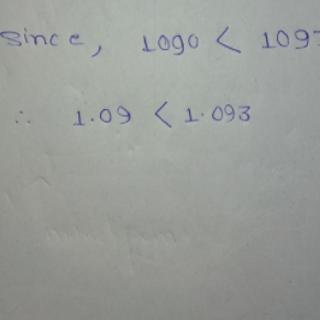 since, 1090 < 1093
∴ 1.09 < 1.093